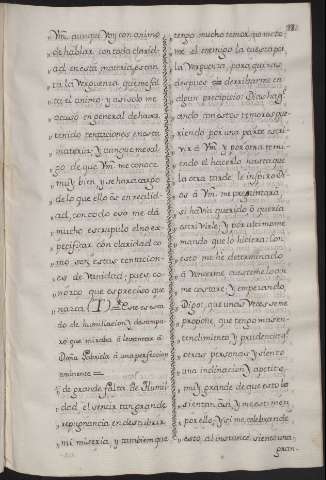 Vm. aunque Voy con animo
de hablar con toda clarid-
ad en esta materia, estan-
ta la Verguenza, que me fal-
ta el animo, y asi solo me
acuso en general de haver
tenido tentaciones en esta
materia; y aunque me val-
go de que Vm. me conoce
muy bien, y se hará cargo
de lo que ello es en realid-
ad, con todo eso me dá
mucho escrupulo el no ex-
pecificar con claridad co-
mo son estas tentacion-
es de Vanidad, pues co-
nozco que es preciso que
nazca (T) Este es esta-
do de humillacion, y desampa-
ro que miraba á levantar á
Doña Gabriela á una perfeccion
eminente =
de grande falta de Humil-
dad el sentir tan grande
repugnancia en descubrir
mi miseria, y tambien que
tengo mucho temor que meto-
me el enemigo la cuesta por
la Verguenza, para que vaya
despues á derribarme en
algun precipicio: Dias há q.
ando con estos temores que-
riendo por una parte escri-
vir á Vm. y por otra temi-
endo el hacerlo, hasta que
la otra tarde le inspiró Di-
os á Vm. me preguntara
si havia querido, ó queria
escrivirle, y por ultimo me
mandó que lo hiciera: con
esto me he determinado
á Vencerme, cueste lo que
me costare, y empezando,
Digo, que unas Veces se me
propone, que tengo mas en-
tendimiento, y prudencia q.
otras personas, y siento
una inclinacion, y apetito
muy grande de que esto lo
sientan asi, y me estimen
por ello, y si me celebran de
esto, al instante siento una
gran-